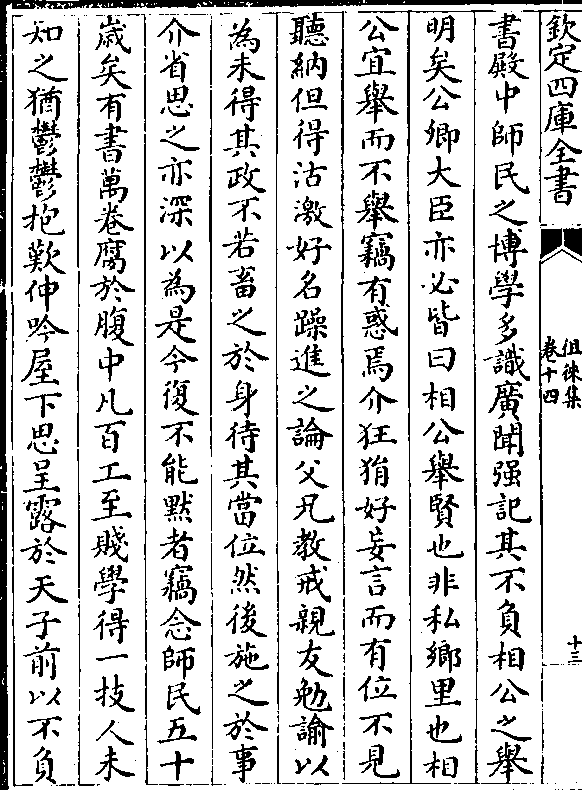 欽定四庫全書
徂徠集
卷十四
十三
書殿中師民之博學多識廣聞强記其不負相公之舉
明矣公卿大臣亦必皆曰相公舉賢也非私鄉里也相
公宜舉而不舉竊有惑焉介狂狷好妄言而有位不見
聽納但得沽激好名躁進之論父兄教戒親友勉諭以
為未得其政不若畜之於身待其當位然後施之於事
介省思之亦深以為是今復不能默者竊念師民五十
歲矣有書萬卷腐於腹中凡百工至賤學得一技人未
知之猶鬱鬱抱歎伸吟屋下思呈露於天子前以不負